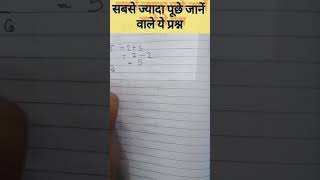 सबसे ज्यादा पूछे जानें
वाले ये प्रश्न
= 5
6
= 2+5
= 7-2
= 5